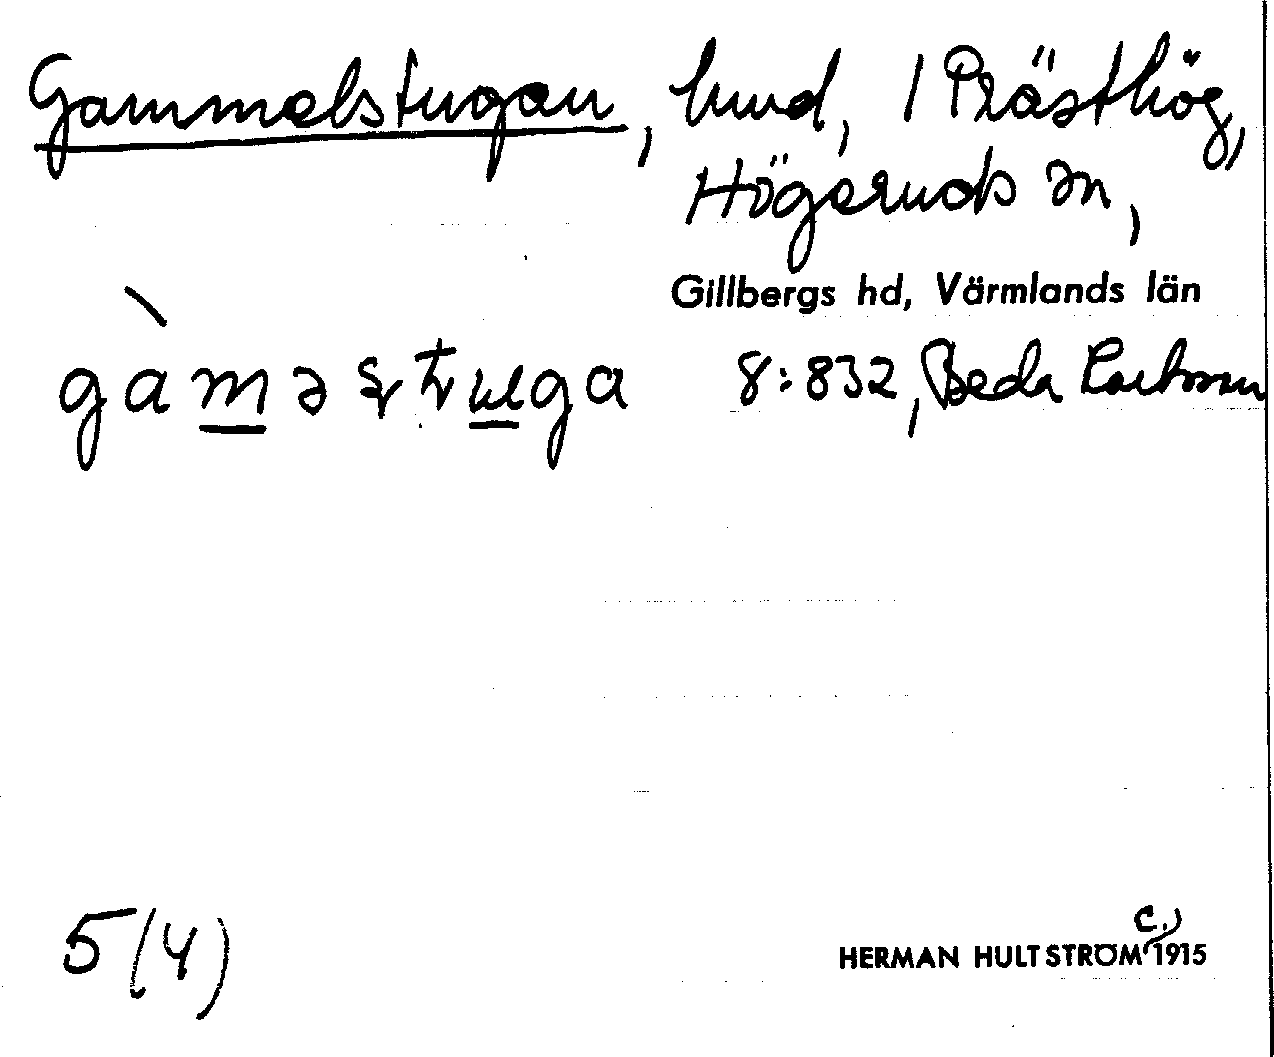 Gammelstugan, lund, 1 Prästhög,
Högeruds sn,
Gillbergs hd, Värmlands län
gàməstuga 8:832, Beda
5(4)
c.)
HERMAN HULTSTRÖM 1915